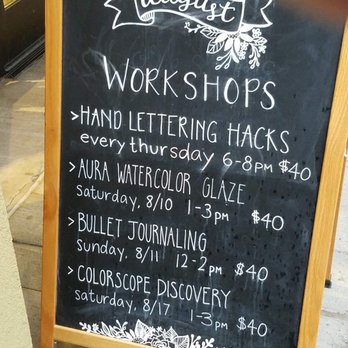 august
WORKSHOPS
>HAND LETTERING HACKS
every thursday 6-8PM $40
>AURA WATERCOLOR GLAZE
saturday, 8/10 1-3PM $40
>BULLET JOURNALING
sunday, 8/11 12-2PM $40
>COLORSCOPE DISCOVERY
saturday, 8/17 1-3PM $40